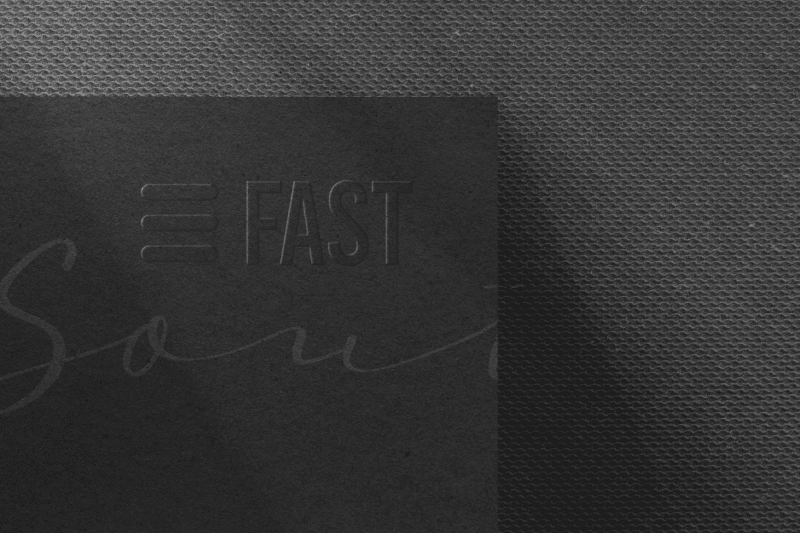 FAST
Sou